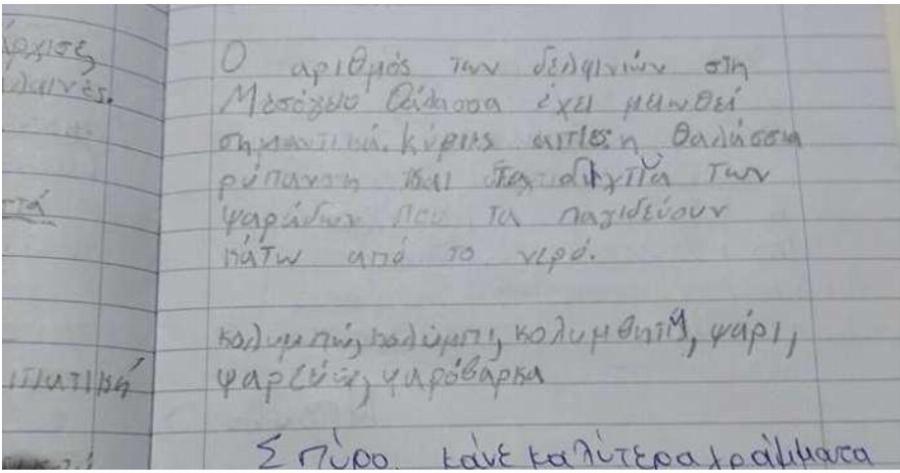 άρχισε
λαινές.
τά
ματική
Ο αριθμός των δελφινιών στη
Μεσόγειο Θάλασσα έχει μειωθεί
σημαντικά. Κύριες αιτίες η θαλάσσια
ρύπανση και τα δίχτυα των
ψαράδων που τα παγιδεύουν
κάτω από το νερό.
κολυμπώ, κολύμπι, κολυμβητή, ψάρι,
ψαρεύω, ψαρόβαρκα
Σπύρο κάνε καλύτερα γράμματα